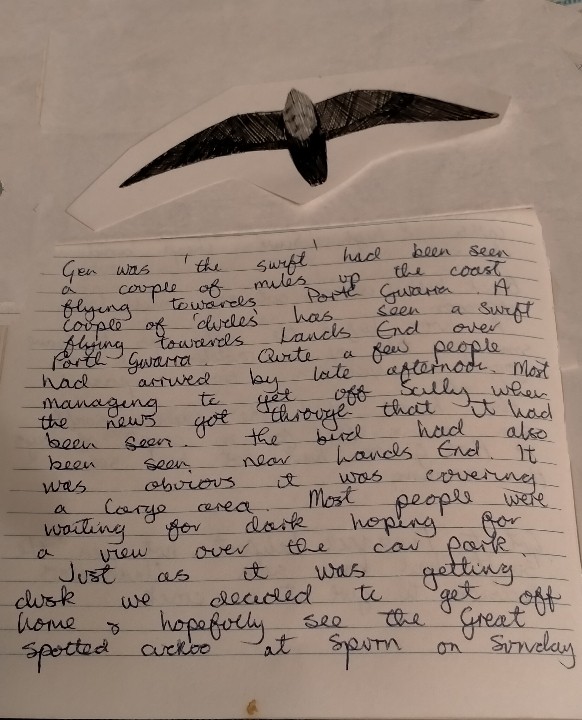 Gen was 'the swift' had been seen
a couple of miles up the coast
flying towards Porth Gwarra. A
couple of 'dudes' has seen a swift
flying towards Lands End over
Porth Gwarra. Quite a few people
had arrived by late afternoon. Most
managing to get off Scilly when
the news got through that it had
been seen. the bird had also
been seen near Lands End. It
was obvious it was covering
a large area. Most people were
waiting for dark hoping for
a view over the car park.
Just as it was getting
dusk we decided to get off
home & hopefully see the Great
Spotted cuckoo at Spurn on Sunday